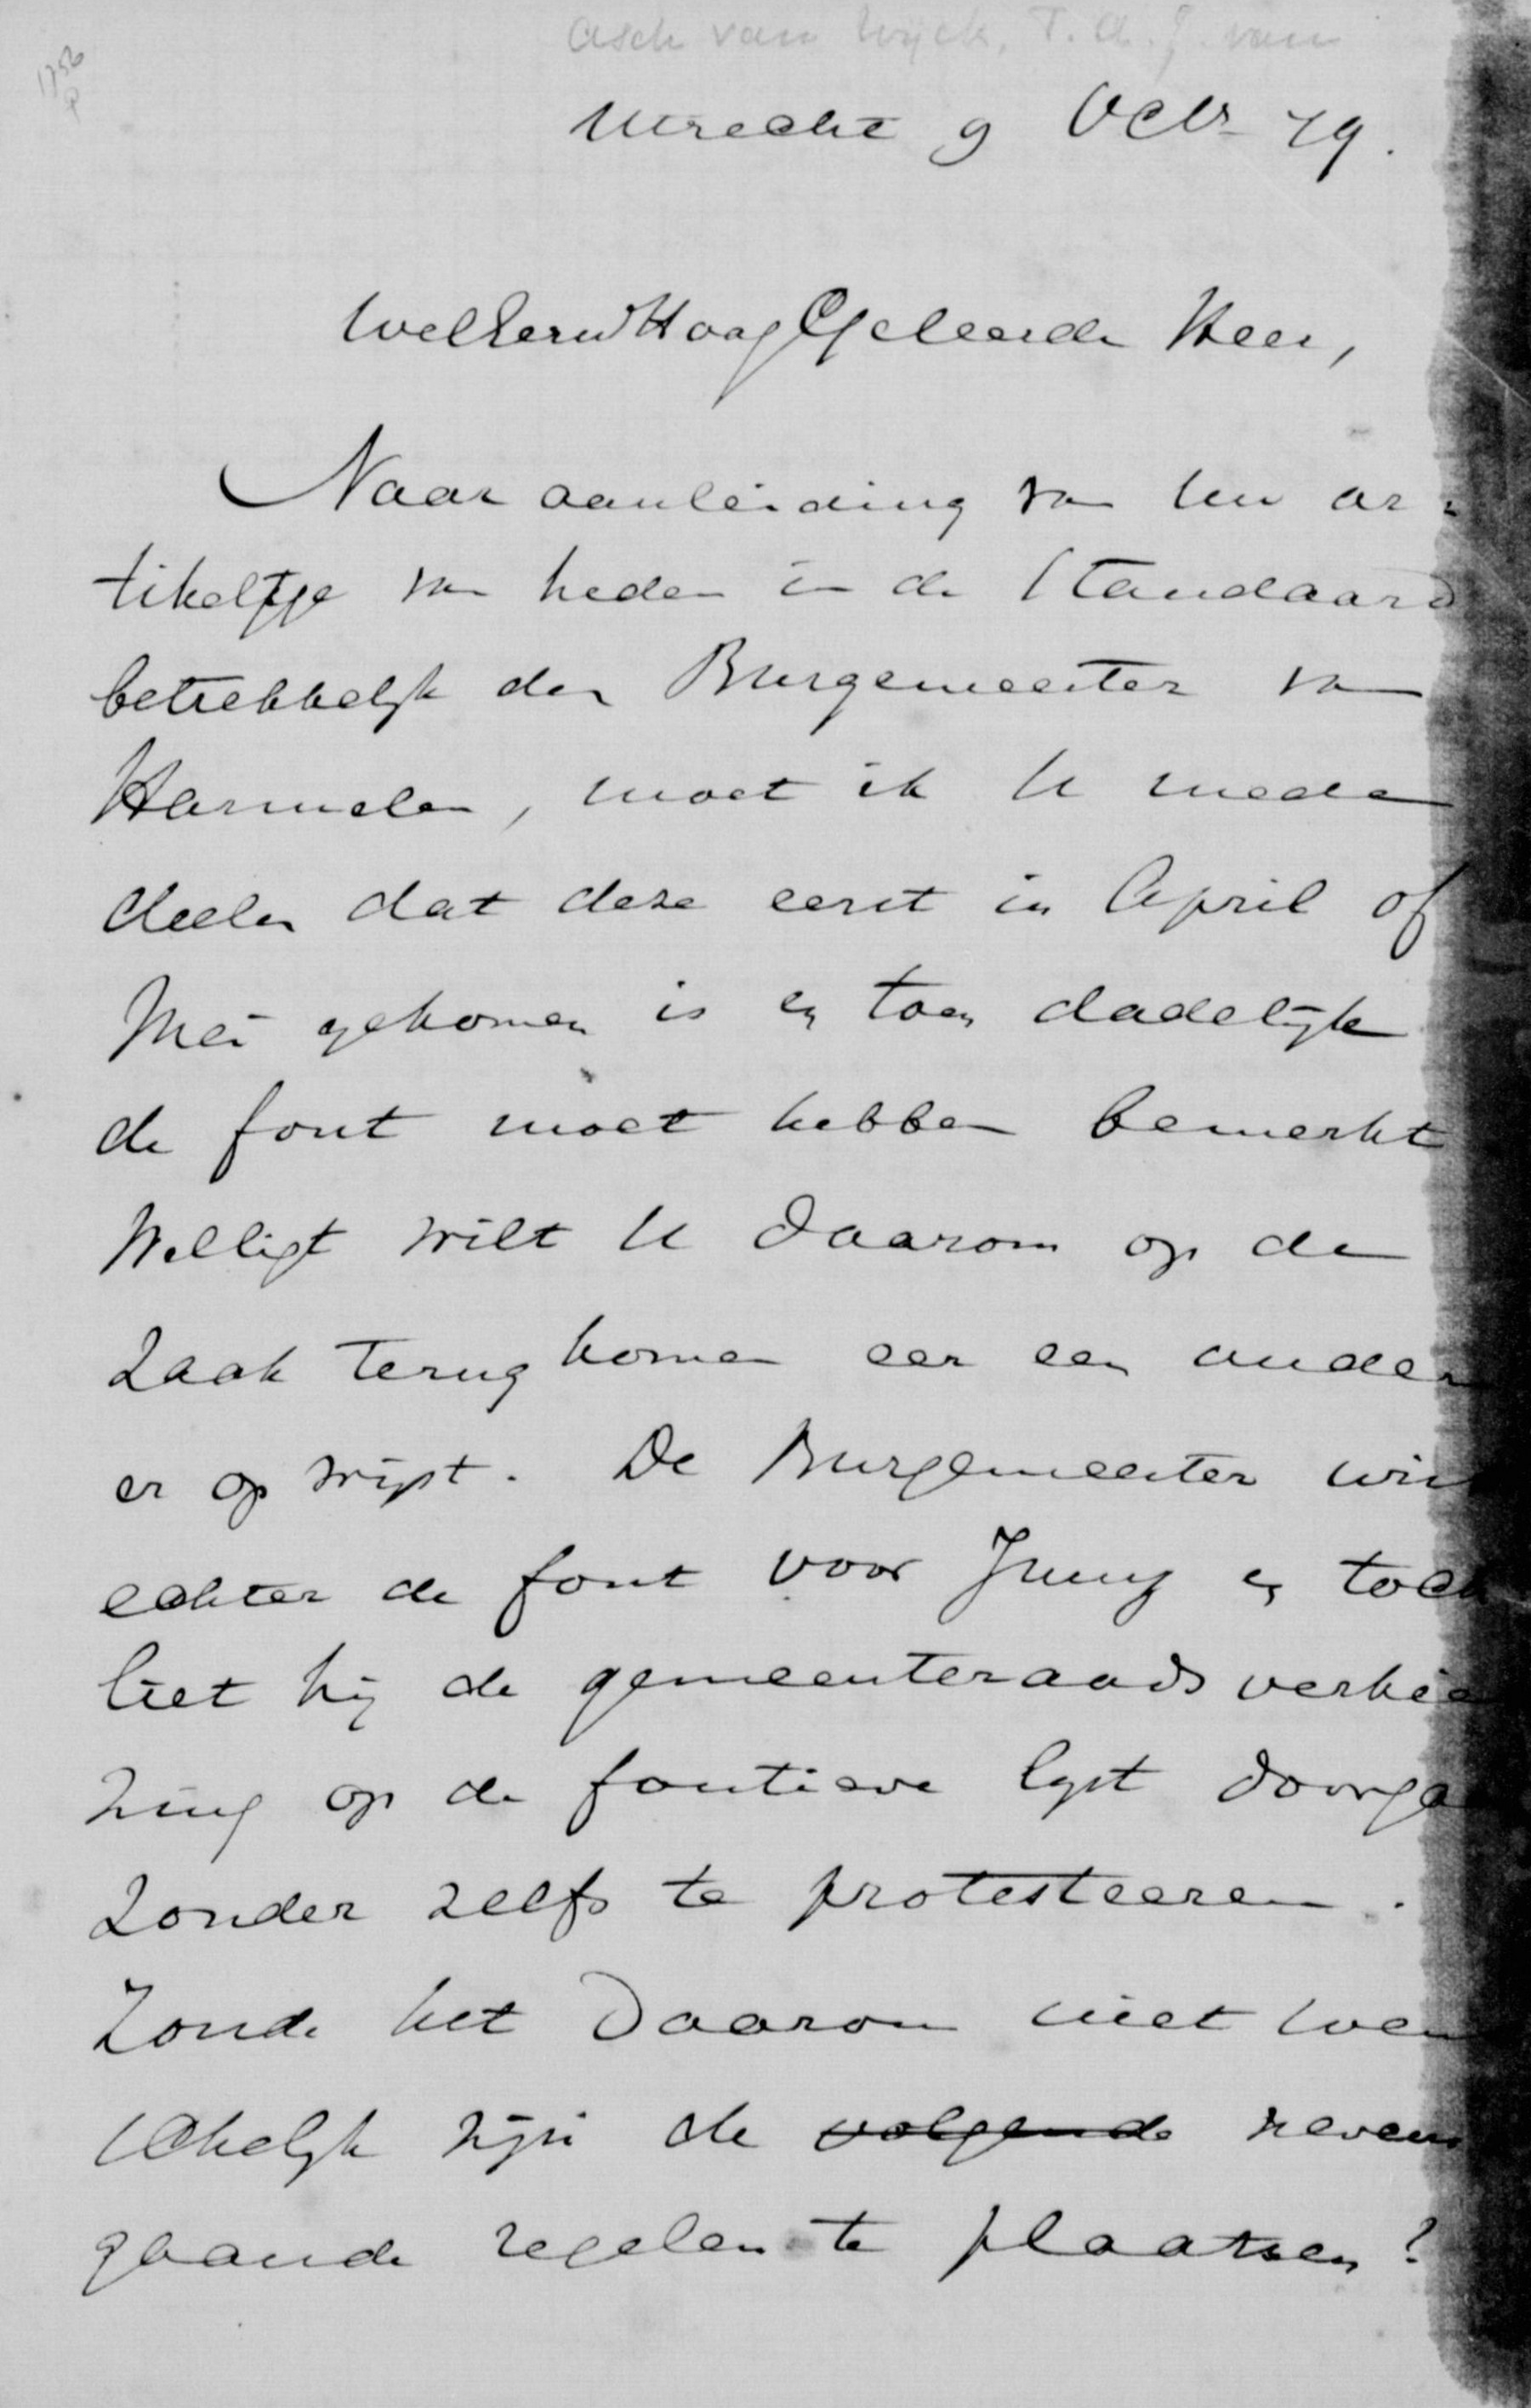 Asch van Wyck, T. A. J. van
1756
P
Utrecht 9 Octr 79.
WelEerwHoogGeleerde Heer,
Naar aanleiding van Uw ar=
tikeltje van heden in de Standaard
betrekkelijk den Burgemeester van
Harmelen, moet ik U mede
deelen dat deze eerst in April of
Mei gekomen is en toen dadelijk
de fout moet hebben bemerkt
Welligt wilt U daarom op de
zaak terug komen eer een ander
er op wijst. De Burgemeester wist
echter de fout voor Juny en toch
liet hij de gemeenteraads verkie
zing op de foutieve lijst doorga
zonder zelfs te protesteeren.
Zoude het daarom niet wen
schelijk zijn de volgende nevens
gaande regelen te plaatsen?